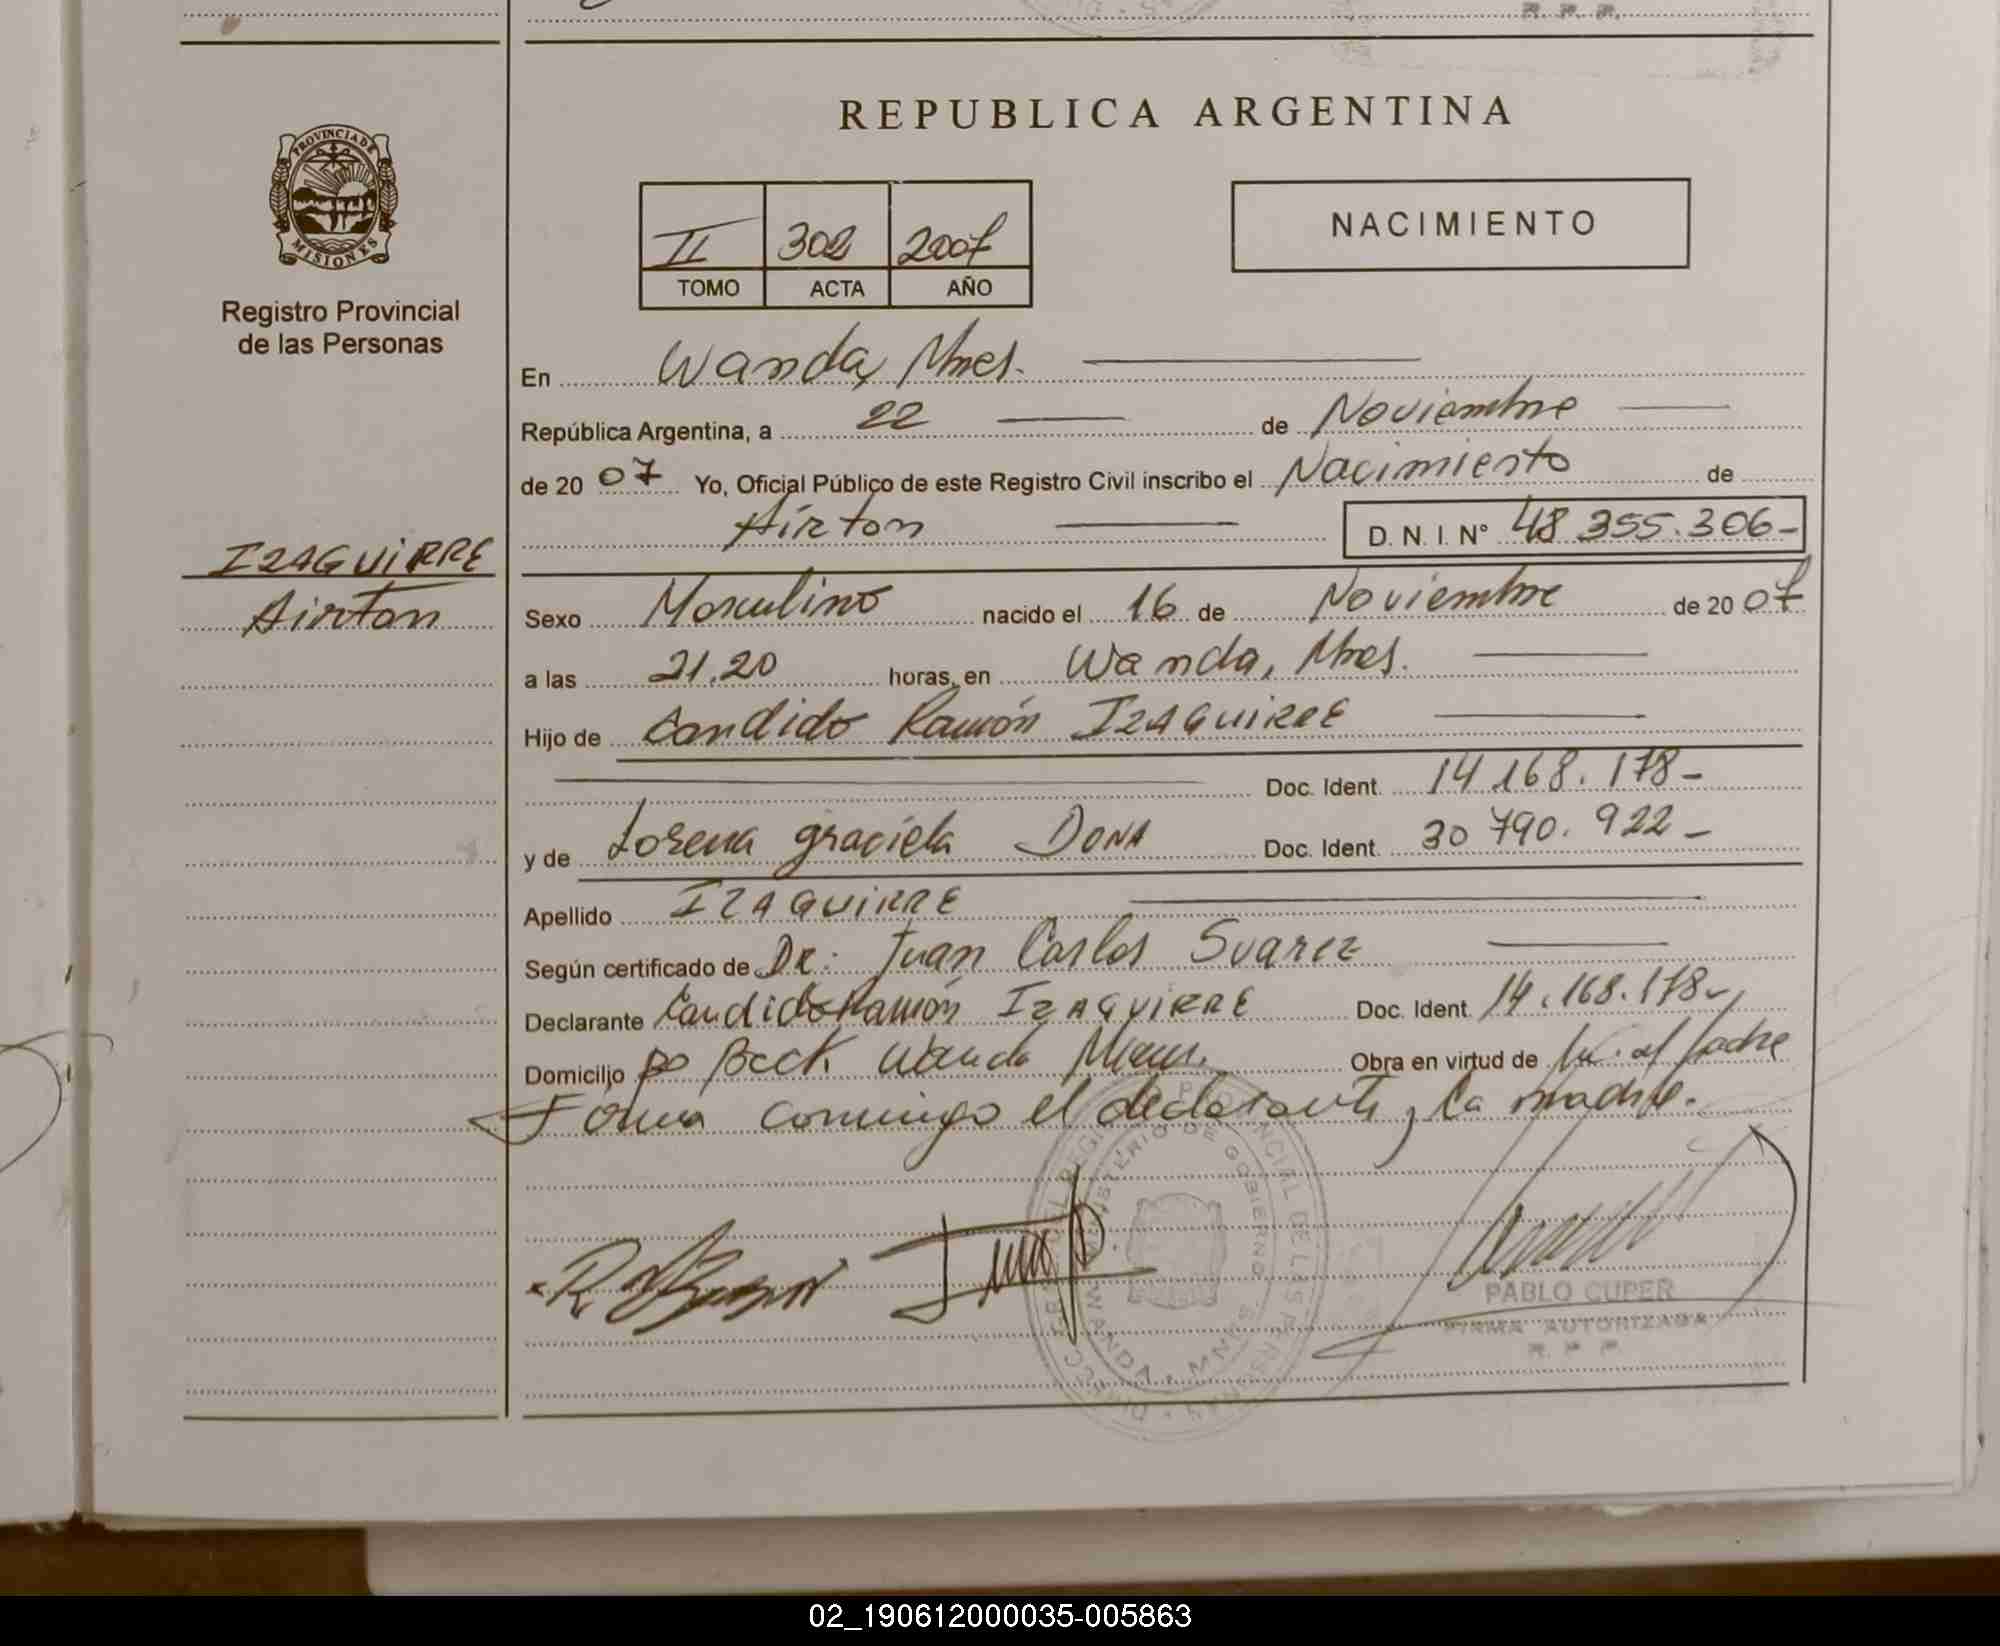 R. P. P.
REPUBLICA ARGENTINA
PROVINCIA DE
MISIONES
Registro Provincial
de las Personas
II 302 2007
TOMO ACTA AÑO
NACIMIENTO
En Wanda, Mnes.
República Argentina, a 22 de Noviembre
de 2007 Yo, Oficial Público de este Registro Civil inscribo el Nacimiento de
Airton D. N. I. N° 48 355.306-
IZAGUIRRE
Airton
Sexo Masculino nacido el 16 de Noviembre de 2007
a las 21,20 horas, en Wanda, Mnes.
Hijo de Candido Ramón IZAGUIRRE
Doc. Ident. 14 168.178-
y de Lorena Graciela DONA Doc. Ident. 30 790.922-
Apellido IZAGUIRRE
Según certificado de Dr: Juan Carlos Suarez
Declarante Candido Ramón IZAGUIRRE Doc. Ident. 14.168.178-,
Domicilio Bo Beck Wanda Obra en virtud de padre
Firma conmigo el declarante, la madre.
MINISTERIO DE GOBIERNO
WANDA - MNES
PABLO CUPER
FIRMA AUTORIZADA
R. P. P.
02_190612000035-005863